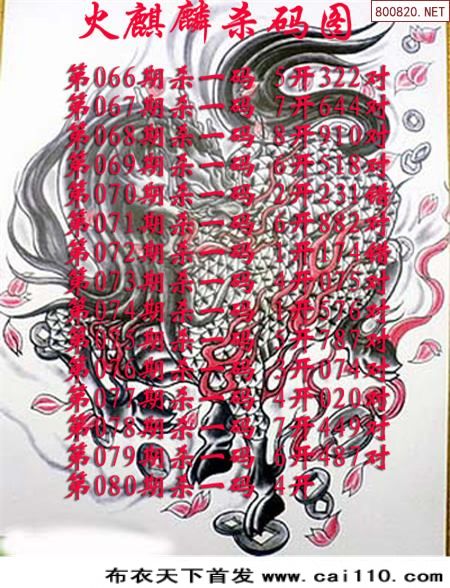 800820.NET
火麒麟杀码图
第066期杀一码 5开322对
第067期杀一码 7开644对
第068期杀一码 8开910对
第069期杀一码 6开518对
第070期杀一码 2开231错
第071期杀一码 6开882对
第072期杀一码 1开174错
第073期杀一码 4开075对
第074期杀一码 1开576对
第075期杀一码 开787对
第076期杀一码 开074对
第077期杀一码 4开020对
第078期杀一码 7开449对
第079期杀一码 6开487对
第080期杀一码 4开
布衣天下首发 www.cai110.com